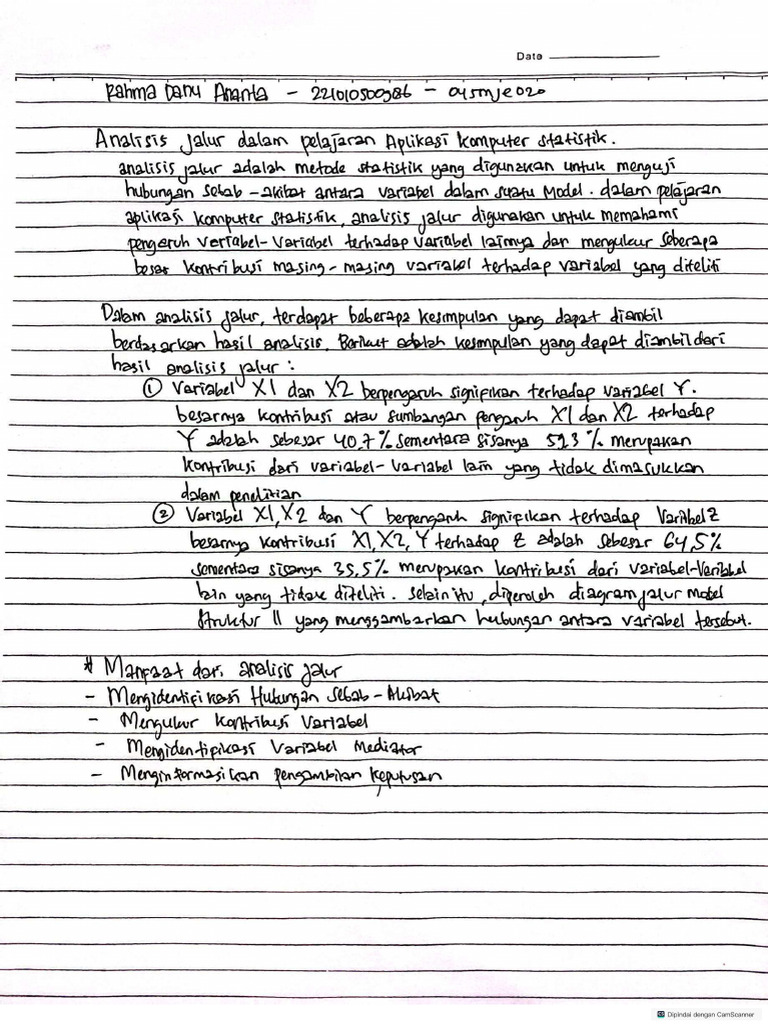 Date
Rahma Danu Ananta - 221010500986 - 04smje020
Analisis jalur dalam pelajaran Aplikasi komputer statistik.
analisis jalur adalah metode statistik yang digunakan untuk menguji
hubungan sebab-akibat antara variabel dalam suatu Model. dalam pelajaran
aplikasi komputer statistik, analisis jalur digunakan untuk memahami
pengaruh vertabel-variabel terhadap variabel lainnya dan mengukur seberapa
besar kontribusi masing-masing variabel terhadap variabel yang diteliti
Dalam analisis jalur, terdapat beberapa kesimpulan yang dapat diambil
berdasarkan hasil analisis. Berikut adalah kesimpulan yang dapat diambil dari
hasil analisis jalur :
① Variabel X1 dan X2 berpengaruh signifikan terhadap variabel Y.
besarnya kontribusi atau sumbangan pengaruh X1 dan X2 terhadap
Y adalah sebesar 40,7% sementara sisanya 59,3% merupakan
kontribusi dari variabel-variabel lain yang tidak dimasukkan
dalam penelitian
② Variabel X1, X2 dan Y berpengaruh signifikan terhadap Variabel Z
besarnya kontribusi X1, X2, Y terhadap Z adalah sebesar 64,5%
sementara sisanya 35,5% merupakan kontribusi dari variabel-Variabel
lain yang tidak diteliti. Selain itu, diperoleh diagram jalur model
struktur II yang menggambarkan hubungan antara variabel tersebut.
* Manfaat dari analisis jalur
- Mengidentifikasi Hubungan Sebab-Akibat
- Mengukur Kontribusi Variabel
- Mengidentifikasi Variabel Mediator
- Menginformasikan pengambilan keputusan
Dipindai dengan CamScanner